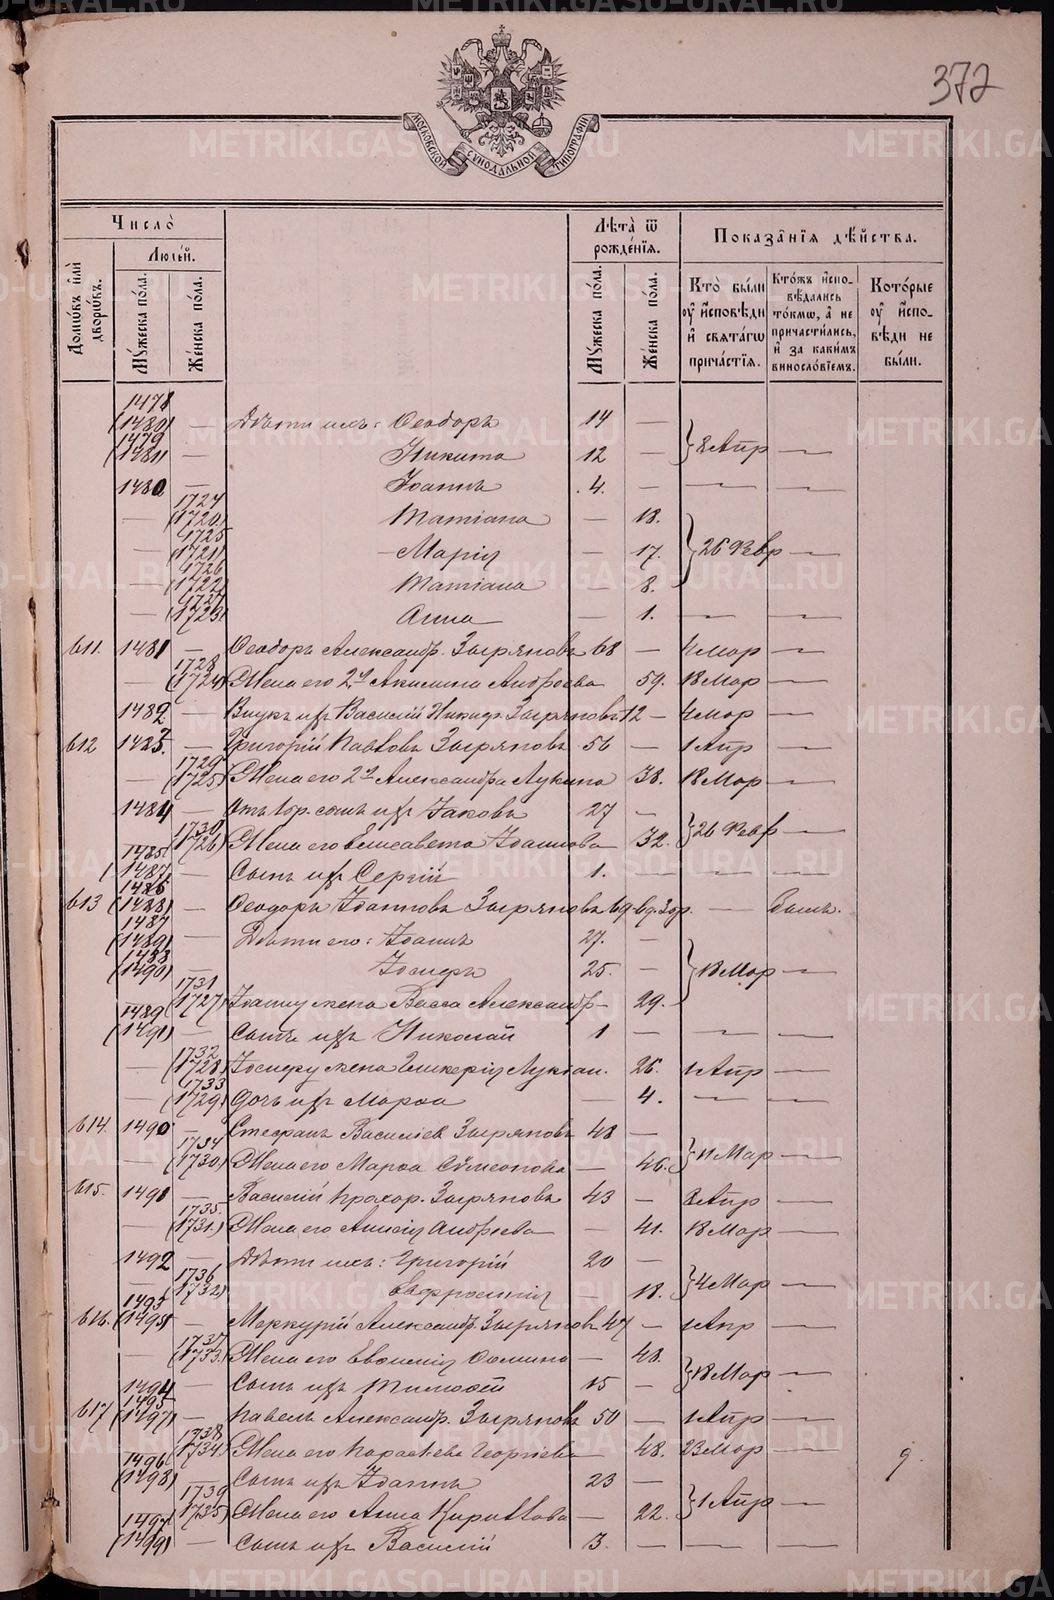 372
МОСКОВСКОЙ СѴНОДАЛЬНОЙ ТИПОГРАФІИ
Число̀
Людей.
Домѡвъ и҆лѝ дворѡвъ.
Мꙋжеска по́ла.
Же́нска по́ла.
Лѣта̀ ѿ рожде́нїѧ.
Мꙋжеска по́ла.
Же́нска по́ла.
Показа̑нїѧ дѣ́йства.
Кто̀ бы́ли ᲂу҆ и҆́сповѣди и҆ свѧта́гѡ причⷭ҇а́стїѧ.
Кто́жъ и҆сповѣдались то́кмѡ, а҆ не причасти́лись, и҆ за каки́мъ винослові́емъ.
Кото́рые ᲂу҆ и҆́сповѣди не бы́ли.
1478
(1480) — Дѣти ихъ: Ѳеодоръ 14 —
1479
(1481) — Никита 12 — } 8 Апр —
1480 — Іоаннъ 4. — — —
1724
— (1720) Татіана — 18.
1725
— (1721) Марія — 17. } 26 Февр —
1726
— (1722) Татіана — 8.
1727
— (1723) Анна — 1. — —
611. 1481 — Ѳеодоръ Александр. Зыряновъ 68 — 4 Мар —
1728
— (1724) Жена его 2я Акилина Андреева 59. 18 Мар —
1482 — Внукъ ихъ Василій Никиф. Зыряновъ 12 — 4 Мар —
612 1483. — Григорій Павловъ Зыряновъ 56 — 1 Апр —
1729
— (1725) Жена его 2я Александра Лукина 38. 18 Мар —
1484 — Отъ 1 бр. сынъ ихъ Іаковъ 27 —
1730
(1726) Жена его Елисавета Іоаннова 32. } 26 Февр —
1485
(1487) — Сынъ ихъ Сергій 1. — — —
1486
613 (1488) — Ѳеодоръ Іоанновъ Зыряновъ 69 — былъ.
1487
(1489) — Дѣти его: Іоаннъ 27. —
1488
(1490) — Іосифъ 25. — } 18 Мар —
1731
(1727) Іоанну жена Васса Александр — 29.
1489
(1491) — Сынъ ихъ Николай 1 — — —
1732
— (1728) Іосифу жена Гликерія Лукіан. 26. 1 Апр —
1733
— (1729) Дочь ихъ Марѳа — 4. — —
614. 1490 — Стефанъ Василіев Зыряновъ 48 —
1734
— (1730) Жена его Марѳа Сѵмеонова — 46. } 11 Мар —
615. 1491 — Василій Прохор. Зыряновъ 43 — 8 Апр —
1735.
— (1731.) Жена его Анисія Андреева — 41. 18 Мар —
1492 — Дѣти ихъ: Григорій 20 —
1736
— (1732) Евфросинія — 18. } 4 Мар —
1493
616. (1495) — Меркурій Александр. Зыряновъ 47 — 1 Апр —
1737
— (1733.) Жена его Евдокія Ѳомина — 48.
1494 — Сынъ ихъ Тимоѳей 15 — } 18 Мар —
1495
617 (1497) — Павелъ Александр. Зыряновъ 50 — 1 Апр —
1738
(1734) Жена его Параскева Георгіева 48. 23 Мар — 9.
1496
(1498) — Сынъ ихъ Іоаннъ 23 —
1739
(1735) Жена его Анна Кириллова — 22. } 1 Апр —
1497
(1499) — Сынъ ихъ Василій 3. — — —
METRIKI.GASO-URAL.RU